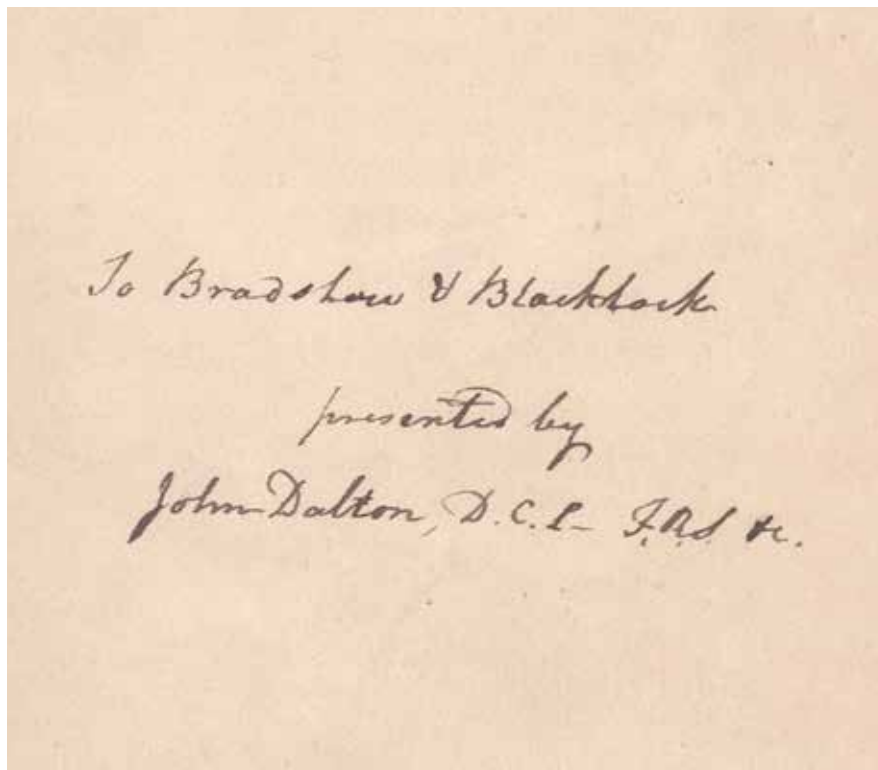 To Bradshaw & Blacklock
presented by
John Dalton, D.C.L. F.R.S. &c.